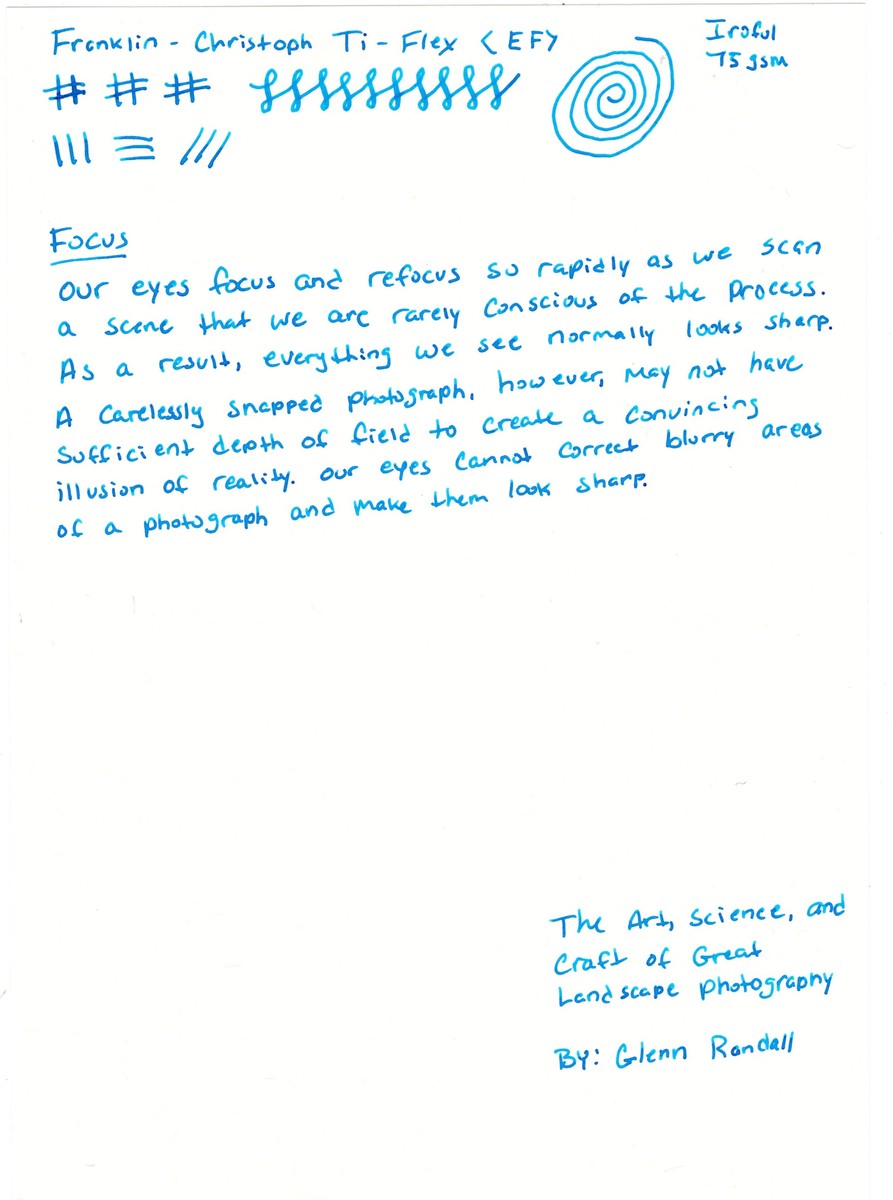 Franklin - Christoph Ti - Flex < EF>
Iroful
75 gsm
Focus
Our eyes focus and refocus so rapidly as we scan
a scene that we are rarely conscious of the process.
As a result, everything we see normally looks sharp.
A carelessly snapped photograph, however, may not have
sufficient depth of field to create a convincing
illusion of reality. Our eyes cannot correct blurry areas
of a photograph and make them look sharp.
The Art, Science, and
Craft of Great
Landscape Photography
By: Glenn Randall